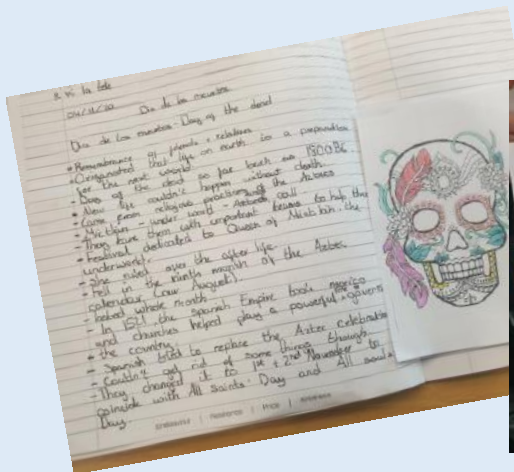 04/11/20 Dia de los muertos
Dia de los muertos - Day of the dead
• Remembrance of friends + relatives
• Originated that life on earth is a preparation
for the next world
- Day of the dead so far back as 1800BC
- New life couldn't happen without death
- Came from religious practices of the Aztecs
- Mictlan - under world - Aztecs call
- They bury them with important to help the
- Festival dedicated to Queen of the
underworld.
- She ruled over the after life.
- Fell in the ninth month of the Aztec
calendar (our August).
- lasted whole month
- In 1521 the Spanish Empire took mexico
and churches helped play a powerful +
the country.
- Spanish tried to replace the Aztec celebration
- Couldn't get rid of some things though
- They changed it to 1st + 2nd November to
coincide with All saints' Day and All soul's
Day.